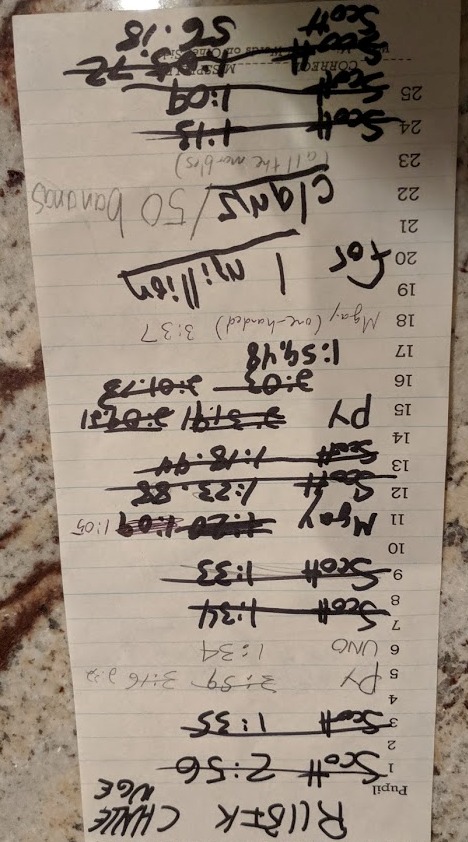 RUBIK CHALLE
NGE
Pupil
1 Scott 2:56
2
3 Scott 1:35
4
5 PY 3:59 3:16
6 UNO 1:34
7 Scott 1:34
8
9 Scott 1:33
10
11 Mgay 1:20 1:09 1:05
12 Scott 1:23.88
13 Scott 1:18.94
14
15 PY 2:51.91 2:04.21
16 2:03 2:01.13
17 1:59.48
18 Mgay (one-handed) 3:37
19
20 For 1 million
21
22 clams /50 bananas
23 (all the marbles)
24 Scott 1:13
25 Scott 1:09
CORREC MISSPELLE
Scott
Words on Othe
Scott 56.18